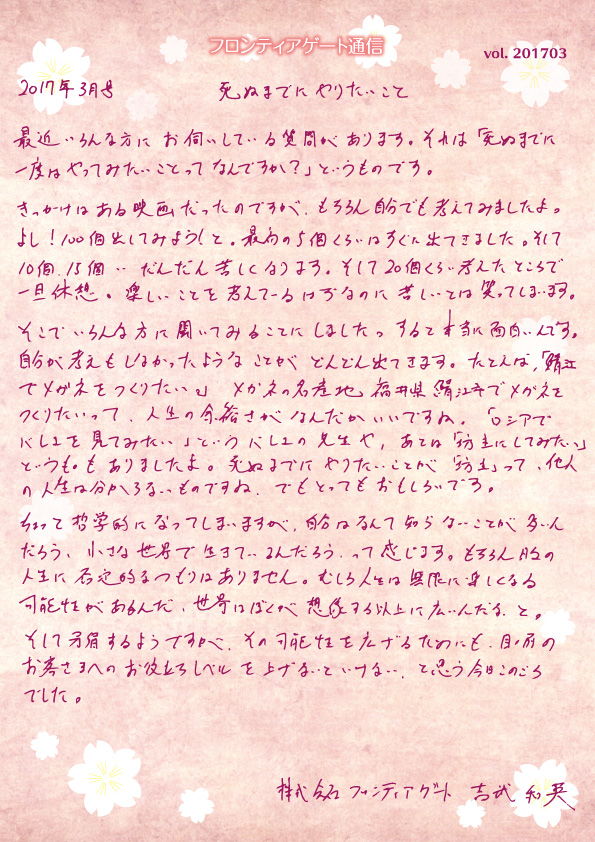 フロンティアゲート通信
vol. 201703
2017年3月号 死ぬまでにやりたいこと
最近いろんな方にお伺いしている質問があります。それは「死ぬまでに
一度はやってみたいことってなんですか?」というものです。
きっかけはある映画だったのですが、もちろん自分でも考えてみましたよ。
よし!100個出してみよう!と。最初の5個くらいはすぐに出てきました。そして
10個、15個‥だんだん苦しくなります。そして20個くらい考えたところで
一旦休憩。楽しいことを考えているはずなのに苦しいとは笑ってしまいます。
そこでいろんな方に聞いてみることにしましたっ すると本当に面白いんです。
自分が考えもしなかったようなことがどんどん出てきます。たとえば、「鯖江
でメガネをつくりたい。」メガネの名産地、福井県鯖江市でメガネを
つくりたいって、人生の余裕さがなんだかいいですね。「ロシアで
バレエを見てみたい」というバレエの先生や、あとは「坊主にしてみたい」
というものもありましたよ。死ぬまでにやりたいことが「坊主」って、他人
の人生は分からないものですね、でもとってもおもしろいです。
ちょっと哲学的になってしまいますが、自分はなんて知らないことが多いん
だろう、小さな世界で生きているんだろう、って感じます。もちろん自分の
人生に否定的なつもりはありません。むしろ人生は無限に楽しくなる
可能性があるんだ、世界はぼくが想像する以上に広いんだな、と。
そして矛盾するようですが、その可能性を広げるためにも、目の前の
お客さまへのお役立ちレベルを上げないといけない、と思う今日このごろ
でした。
株式会社フロンティアゲート 吉武 和英